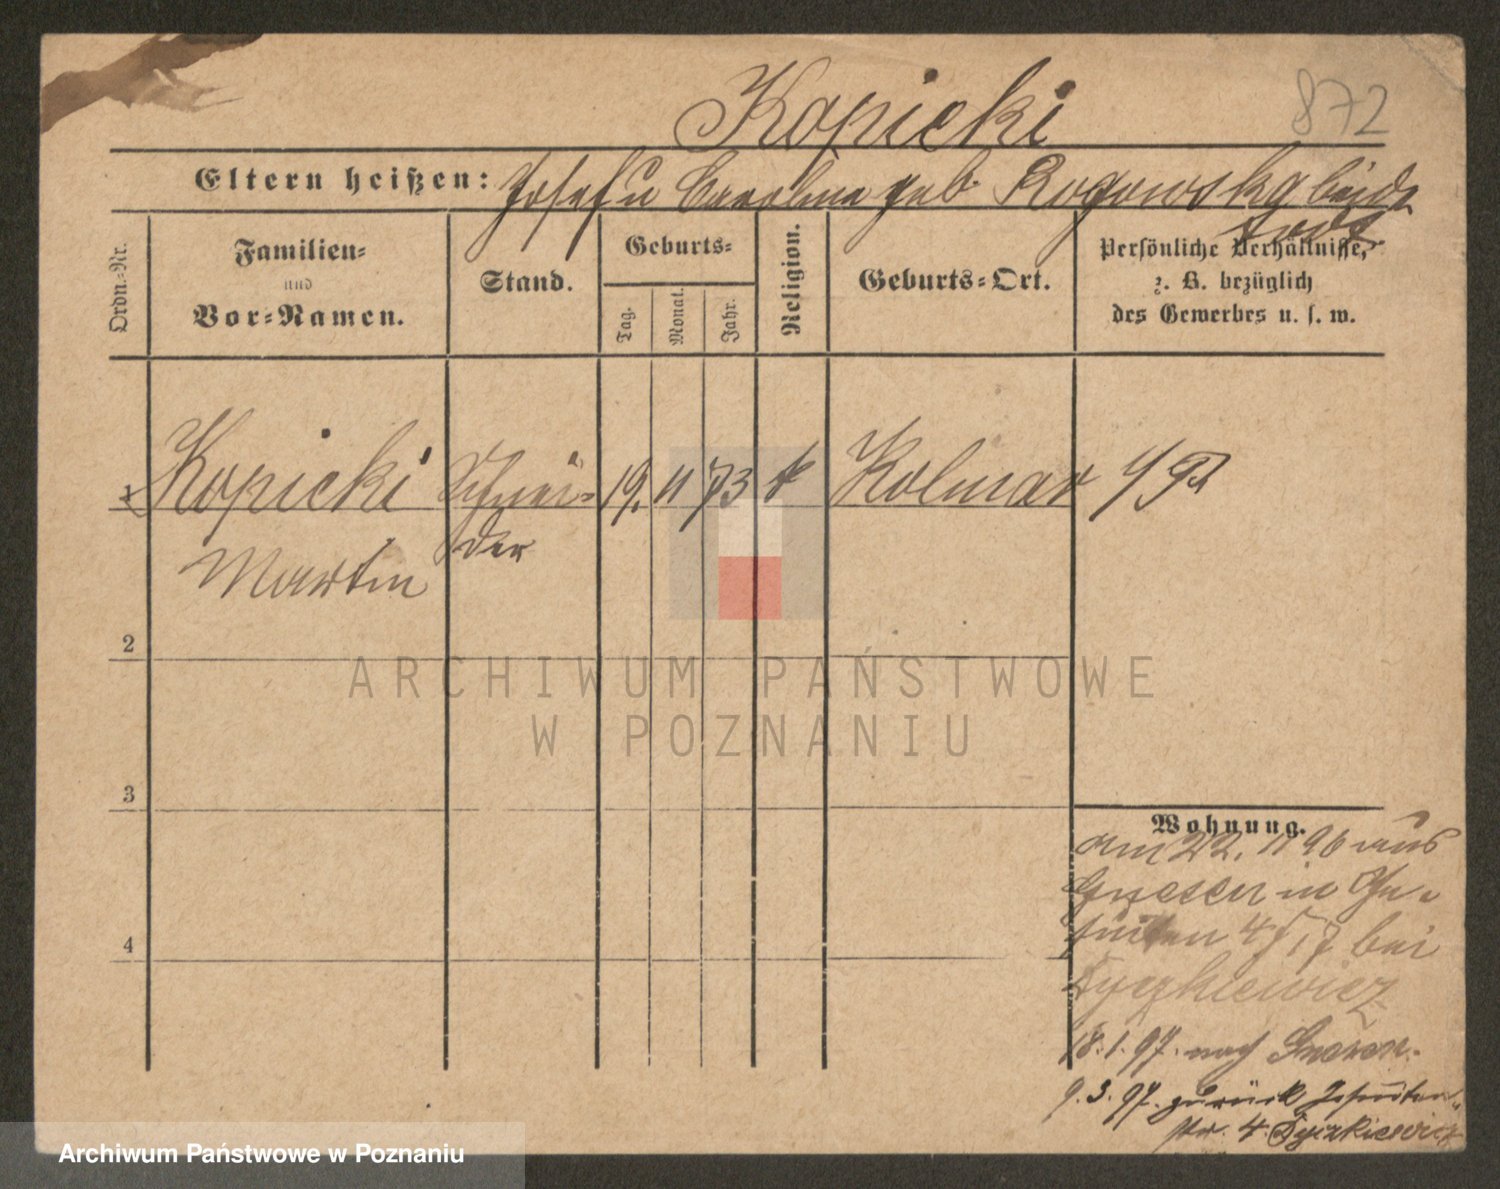 Kopicki
872
Eltern heißen: Josef u Caroline geb. Rogowska beide
todt
Ordn.-Nr.
Familien-
und
Vor-Namen.
Stand.
Geburts-
Tag.
Monat.
Jahr.
Religion.
Geburts-Ort.
Persönliche Verhältnisse,
z. B. bezüglich
des Gewerbes u. s. w.
1 Kopicki Schnei- 19. 11 73 k Kolmar
der
Martin
2
3
4
Wohnung.
am 22. 11 96 aus
Gnesen in Je-
suiten 4 bei
Tyczkiewicz
18. 1. 97. nach Gnesen.
9. 3. 97. zurück Jesuiten-
str. 4. Tyczkiewicz
ARCHIWUM PAŃSTWOWE
W POZNANIU
Archiwum Państwowe w Poznaniu